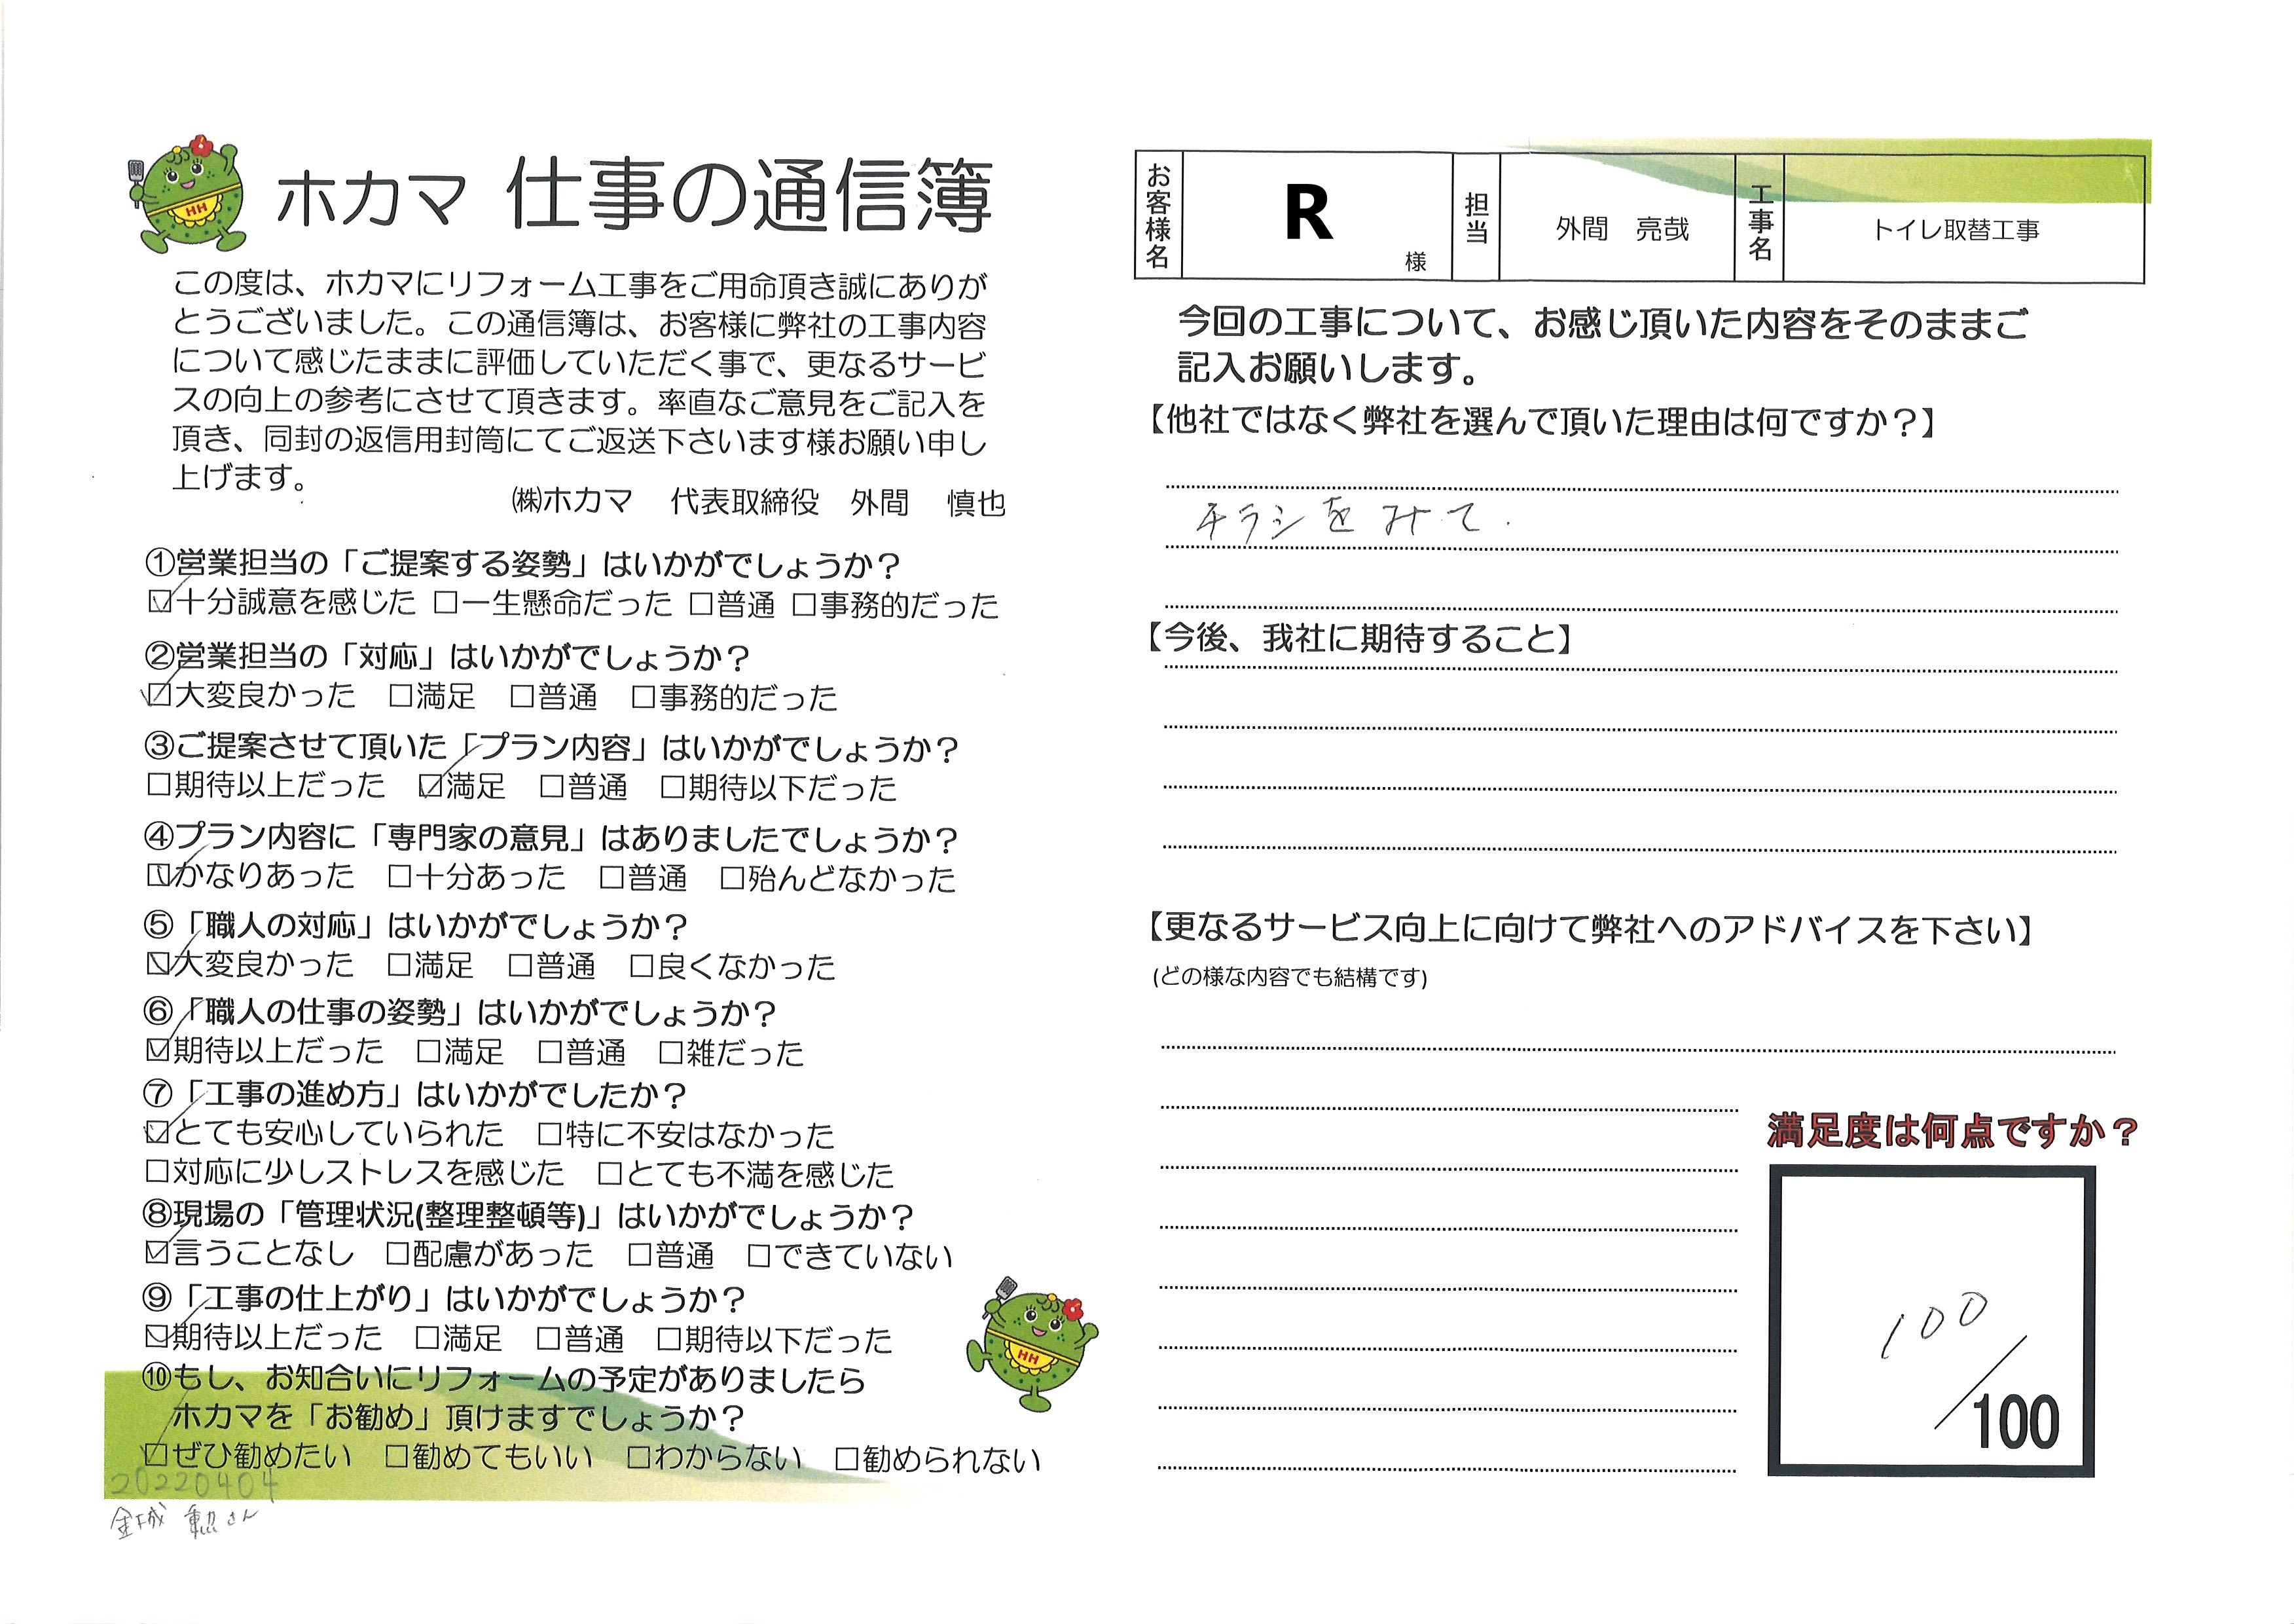 ホカマ 仕事の通信簿
この度は、ホカマにリフォーム工事をご用命頂き誠にありが
とうございました。この通信簿は、お客様に弊社の工事内容
について感じたままに評価していただく事で、更なるサービ
スの向上の参考にさせて頂きます。率直なご意見をご記入を
頂き、同封の返信用封筒にてご返送下さいます様お願い申し
上げます。
㈱ホカマ 代表取締役 外間 慎也
①営業担当の「ご提案する姿勢」はいかがでしょうか？
☑十分誠意を感じた □一生懸命だった □普通 □事務的だった
②営業担当の「対応」はいかがでしょうか？
☑大変良かった □満足 □普通 □事務的だった
③ご提案させて頂いた「プラン内容」はいかがでしょうか？
□期待以上だった ☑満足 □普通 □期待以下だった
④プラン内容に「専門家の意見」はありましたでしょうか？
☑かなりあった □十分あった □普通 □殆んどなかった
⑤「職人の対応」はいかがでしょうか？
☑大変良かった □満足 □普通 □良くなかった
⑥「職人の仕事の姿勢」はいかがでしょうか？
☑期待以上だった □満足 □普通 □雑だった
⑦「工事の進め方」はいかがでしたか？
☑とても安心していられた □特に不安はなかった
□対応に少しストレスを感じた □とても不満を感じた
⑧現場の「管理状況(整理整頓等)」はいかがでしょうか？
☑言うことなし □配慮があった □普通 □できていない
⑨「工事の仕上がり」はいかがでしょうか？
☑期待以上だった □満足 □普通 □期待以下だった
⑩もし、お知合いにリフォームの予定がありましたら
ホカマを「お勧め」頂けますでしょうか？
☑ぜひ勧めたい □勧めてもいい □わからない □勧められない
20220404
金城 勲さん
HH
HH
お客様名 R 様 担当 外間 亮哉 工事名 トイレ取替工事
今回の工事について、お感じ頂いた内容をそのままご
記入お願いします。
【他社ではなく弊社を選んで頂いた理由は何ですか？】
チラシをみて.
【今後、我社に期待すること】
【更なるサービス向上に向けて弊社へのアドバイスを下さい】
(どの様な内容でも結構です)
満足度は何点ですか？
100
/100